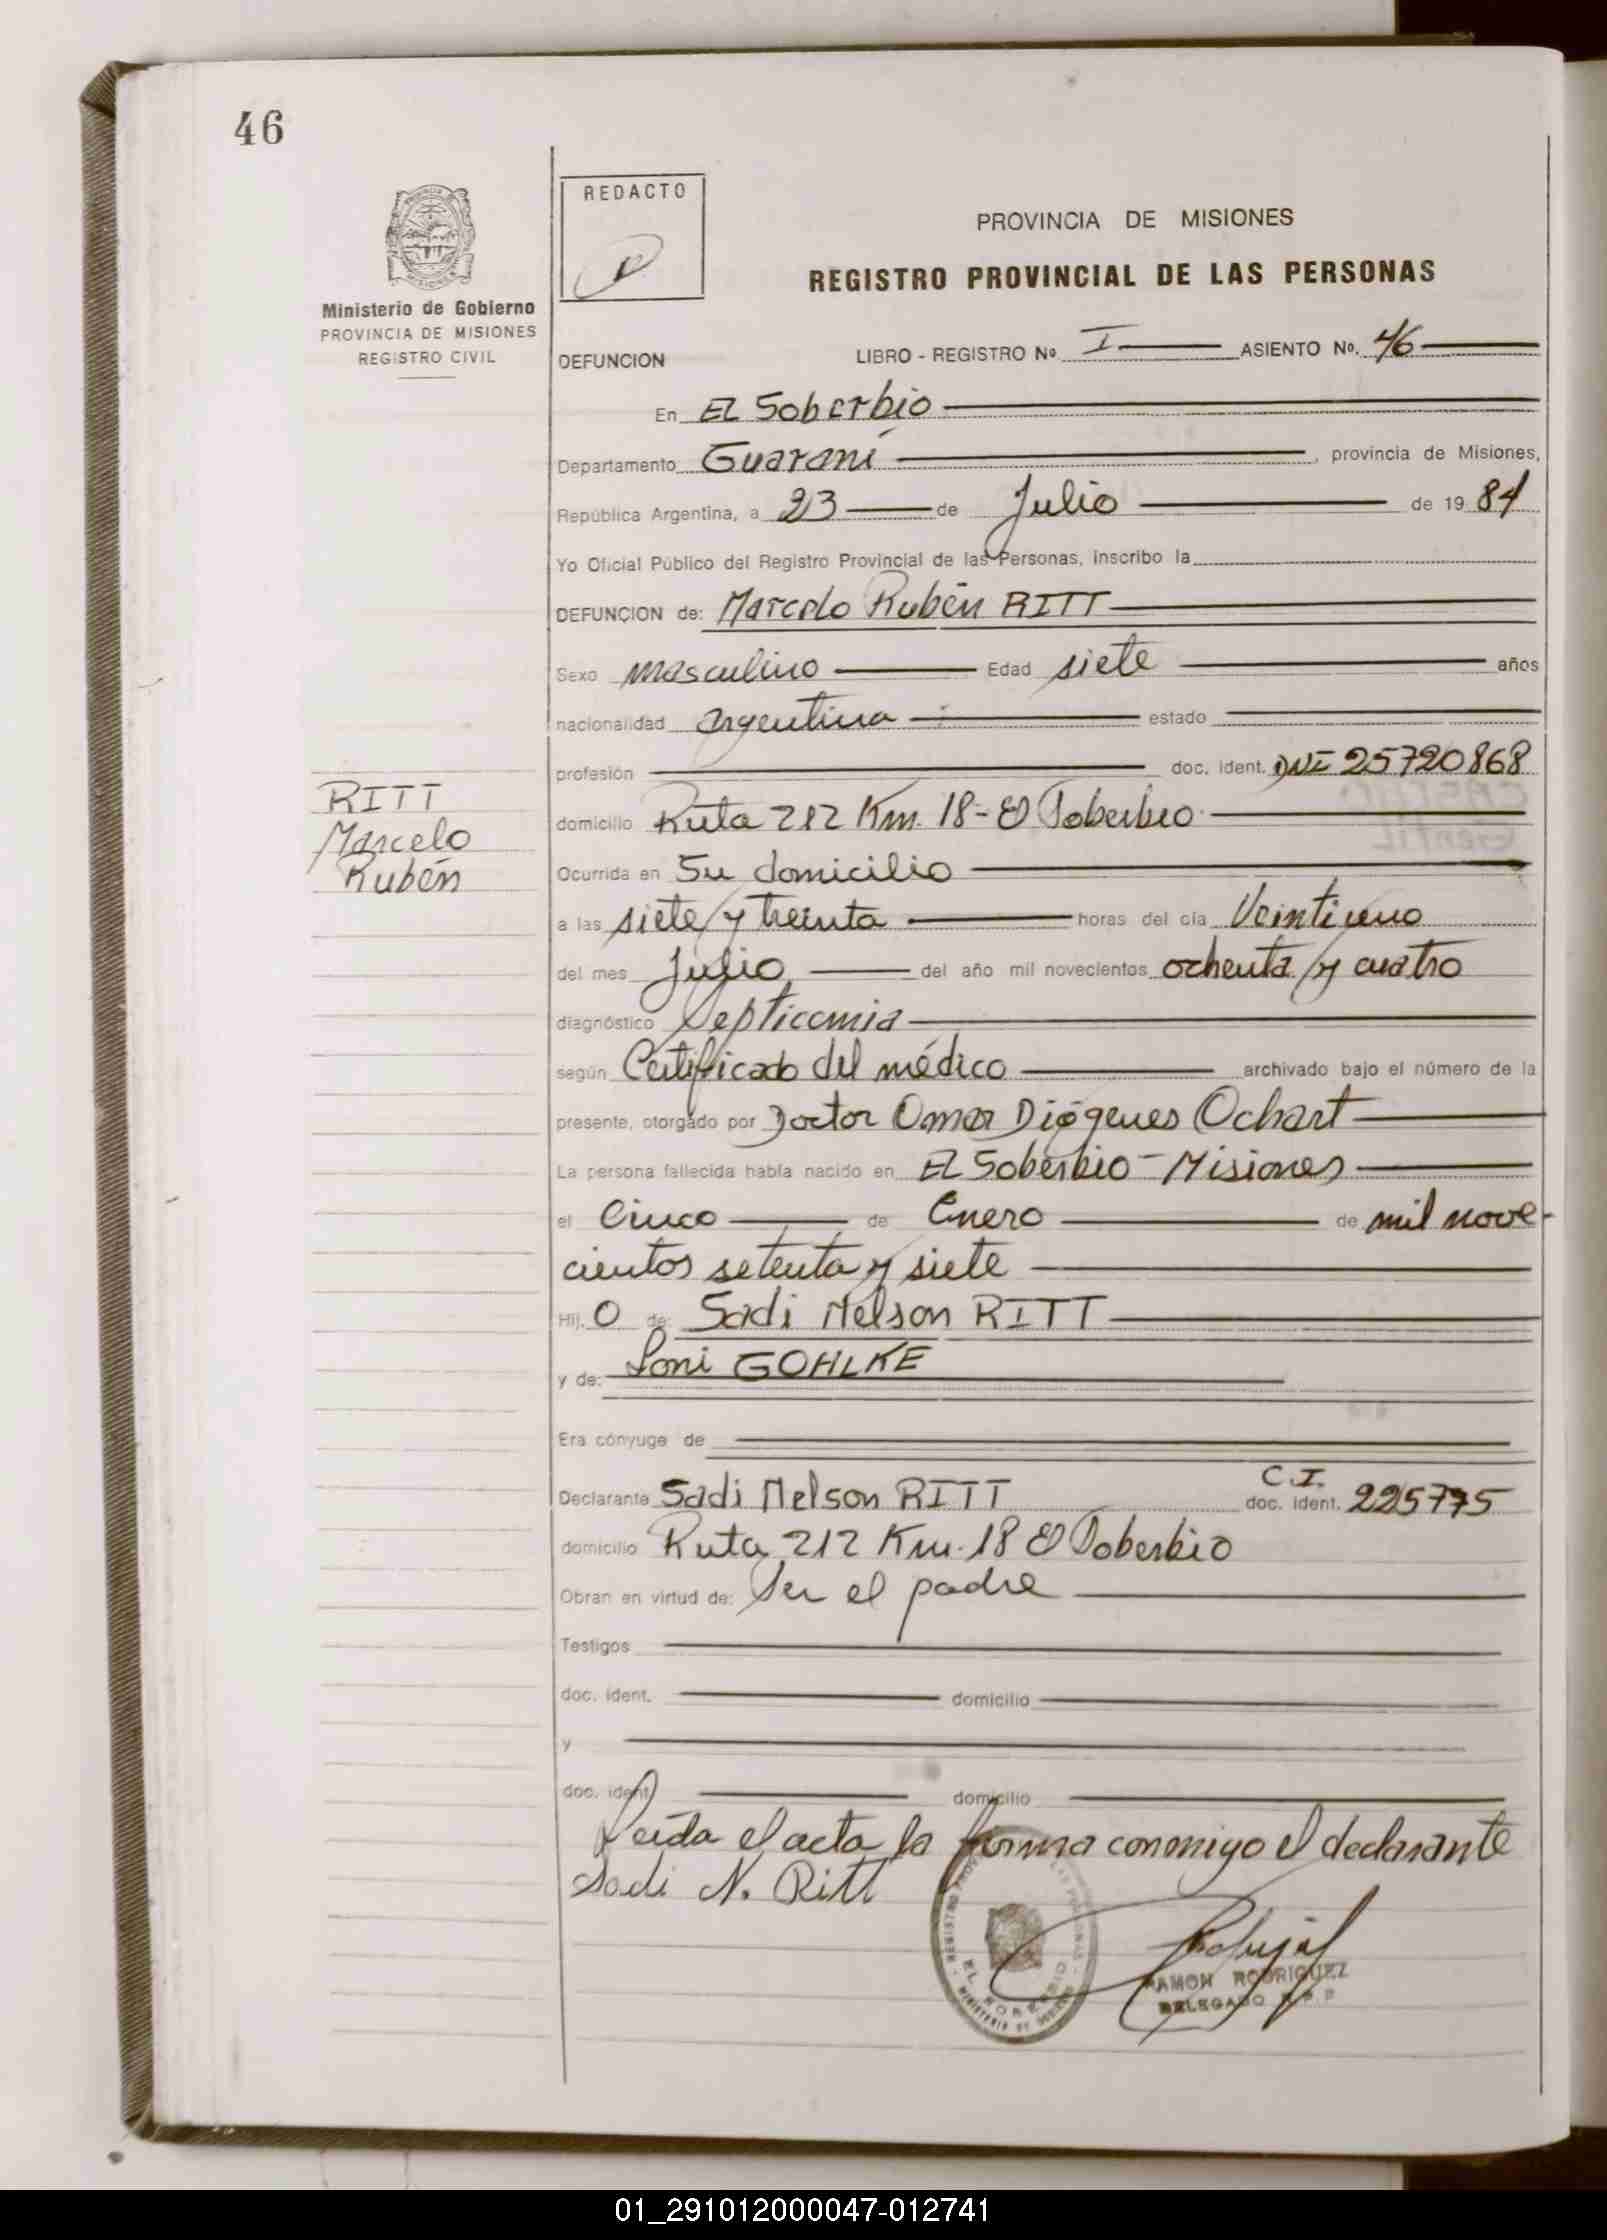 46
REDACTO
PROVINCIA DE MISIONES
REGISTRO PROVINCIAL DE LAS PERSONAS
Ministerio de Gobierno
PROVINCIA DE MISIONES
REGISTRO CIVIL
DEFUNCION LIBRO - REGISTRO Nº I ASIENTO Nº. 46
En EL Soberbio
Departamento Guaraní, provincia de Misiones,
República Argentina, a 23 de Julio de 19 84
Yo Oficial Público del Registro Provincial de las Personas, inscribo la
DEFUNCION de: Marcelo Rubén RITT
Sexo masculino Edad siete años
nacionalidad argentina estado
profesión doc. ident. DNI 25720868
RITT
Marcelo
Rubén
domicilio Ruta 212 Km. 18 - El Soberbio
Ocurrida en Su domicilio
a las siete y treinta horas del día Veintiuno
del mes Julio del año mil novecientos ochenta y cuatro
diagnóstico Septicemia
según Certificado del médico archivado bajo el número de la
presente, otorgado por Doctor Omar Diógenes Ochart
La persona fallecida había nacido en EL Soberbio - Misiones
el Cinco de Enero de mil nove-
cientos setenta y siete
Hij. O de: Sadi Nelson RITT
y de: Loni GOHLKE
Era cónyuge de
Declarante Sadi Nelson RITT C.I. doc. ident. 225775
domicilio Ruta 212 Km. 18 El Soberbio
Obran en virtud de: Ser el padre
Testigos
doc. ident. domicilio
y
doc. ident. domicilio
Leída el acta la firma conmigo el declarante
Sadi N. Ritt
EL SOBERBIO
RAMON RODRIGUEZ
DELEGADO R.P.P
01_291012000047-012741